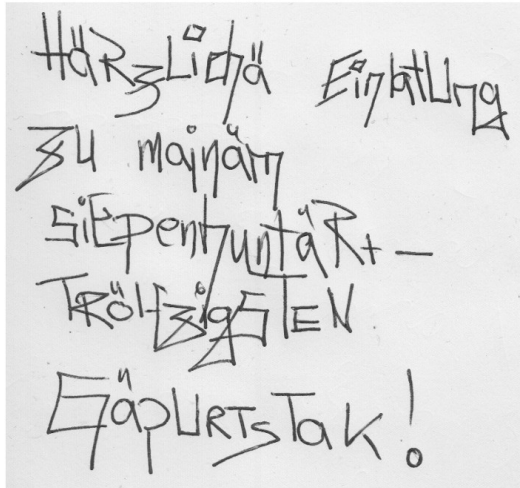 Härzlichä Einlatung
zu mainäm
siEpenhuntäRt-
TRölfzigsTEN
GäpURTsTak!